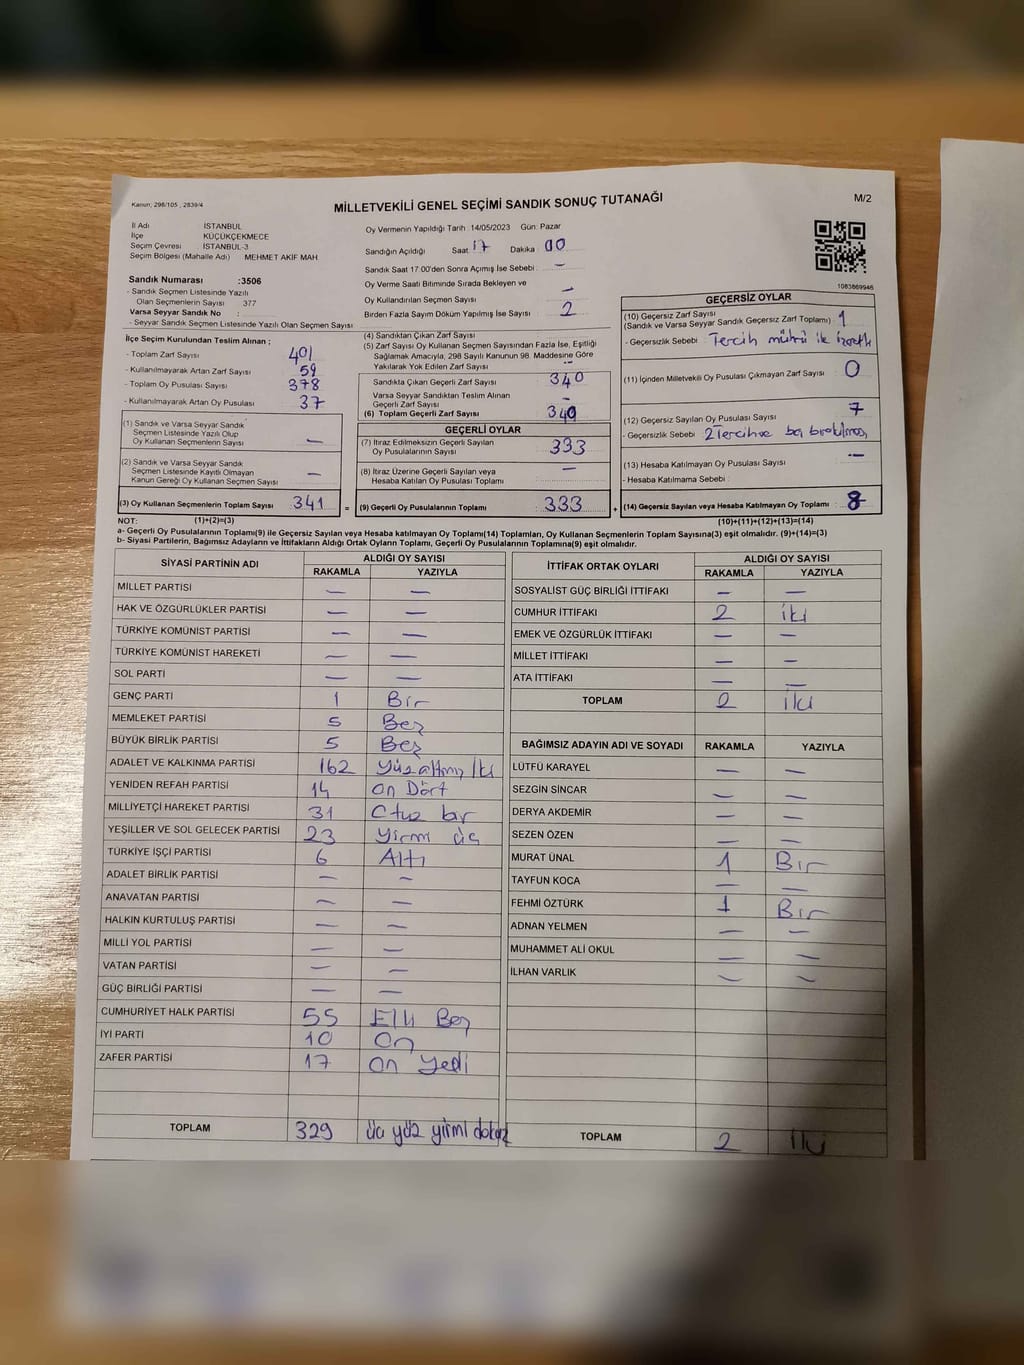 Kanun; 298/105 , 2839/4
MİLLETVEKİLİ GENEL SEÇİMİ SANDIK SONUÇ TUTANAĞI
M/2
İl Adı İSTANBUL
İlçe KÜÇÜKÇEKMECE
Seçim Çevresi : İSTANBUL-3
Seçim Bölgesi (Mahalle Adı) MEHMET AKİF MAH.
Sandık Numarası :3506
- Sandık Seçmen Listesinde Yazılı
Olan Seçmenlerin Sayısı 377
Varsa Seyyar Sandık No :
- Seyyar Sandık Seçmen Listesinde Yazılı Olan Seçmen Sayısı
Oy Vermenin Yapıldığı Tarih 14/05/2023 Gün: Pazar
Sandığın Açıldığı Saat 17 Dakika 00
Sandık Saat 17.00'den Sonra Açımış İse Sebebi : –
Oy Verme Saati Bitiminde Sırada Bekleyen ve
Oy Kullandırılan Seçmen Sayısı –
Birden Fazla Sayım Döküm Yapılmış İse Sayısı : 2
1083869946
İlçe Seçim Kurulundan Teslim Alınan ;
- Toplam Zarf Sayısı 401
- Kullanılmayarak Artan Zarf Sayısı 59
- Toplam Oy Pusulası Sayısı 378
- Kullanılmayarak Artan Oy Pusulası 37
(1) Sandık ve Varsa Seyyar Sandık
Seçmen Listesinde Yazılı Olup
Oy Kullanan Seçmenlerin Sayısı –
(2) Sandık ve Varsa Seyyar Sandık
Seçmen Listesinde Kayıtlı Olmayan
Kanun Gereği Oy Kullanan Seçmen Sayısı –
(3) Oy Kullanan Seçmenlerin Toplam Sayısı 341
(4) Sandıktan Çıkan Zarf Sayısı
(5) Zarf Sayısı Oy Kullanan Seçmen Sayısından Fazla İse, Eşitliği
Sağlamak Amacıyla, 298 Sayılı Kanunun 98. Maddesine Göre
Yakılarak Yok Edilen Zarf Sayısı –
Sandıkta Çıkan Geçerli Zarf Sayısı 340
Varsa Seyyar Sandıktan Teslim Alınan
Geçerli Zarf Sayısı –
(6) Toplam Geçerli Zarf Sayısı 340
GEÇERLİ OYLAR
(7) İtiraz Edilmeksizin Geçerli Sayılan
Oy Pusulalarının Sayısı 333
(8) İtiraz Üzerine Geçerli Sayılan veya
Hesaba Katılan Oy Pusulası Toplamı –
= (9) Geçerli Oy Pusulalarının Toplamı 333
GEÇERSİZ OYLAR
(10) Geçersiz Zarf Sayısı
(Sandık ve Varsa Seyyar Sandık Geçersiz Zarf Toplamı) 1
- Geçersizlik Sebebi : Tercih mührü ile
(11) İçinden Milletvekili Oy Pusulası Çıkmayan Zarf Sayısı 0
(12) Geçersiz Sayılan Oy Pusulası Sayısı 7
- Geçersizlik Sebebi 2 Tercih ve boş
(13) Hesaba Katılmayan Oy Pusulası Sayısı –
- Hesaba Katılmama Sebebi :
+ (14) Geçersiz Sayılan veya Hesaba Katılmayan Oy Toplamı 8
NOT: (1)+(2)=(3) (10)+(11)+(12)+(13)=(14)
a- Geçerli Oy Pusulalarının Toplamı(9) ile Geçersiz Sayılan veya Hesaba katılmayan Oy Toplamı(14) Toplamları, Oy Kullanan Seçmenlerin Toplam Sayısına(3) eşit olmalıdır. (9)+(14)=(3)
b- Siyasi Partilerin, Bağımsız Adayların ve İttifakların Aldığı Ortak Oyların Toplamı, Geçerli Oy Pusulalarının Toplamına(9) eşit olmalıdır.
SİYASİ PARTİNİN ADI ALDIĞI OY SAYISI
RAKAMLA YAZIYLA
MİLLET PARTİSİ – –
HAK VE ÖZGÜRLÜKLER PARTİSİ – –
TÜRKİYE KOMÜNİST PARTİSİ – –
TÜRKİYE KOMÜNİST HAREKETİ – –
SOL PARTİ – –
GENÇ PARTİ 1 Bir
MEMLEKET PARTİSİ 5 Beş
BÜYÜK BİRLİK PARTİSİ 5 Beş
ADALET VE KALKINMA PARTİSİ 162 Yüz altmış İki
YENİDEN REFAH PARTİSİ 14 On Dört
MİLLİYETÇİ HAREKET PARTİSİ 31 Otuz bir
YEŞİLLER VE SOL GELECEK PARTİSİ 23 Yirmi üç
TÜRKİYE İŞÇİ PARTİSİ 6 Altı
ADALET BİRLİK PARTİSİ – –
ANAVATAN PARTİSİ – –
HALKIN KURTULUŞ PARTİSİ – –
MİLLİ YOL PARTİSİ – –
VATAN PARTİSİ – –
GÜÇ BİRLİĞİ PARTİSİ – –
CUMHURİYET HALK PARTİSİ 55 Elli Beş
İYİ PARTİ 10 On
ZAFER PARTİSİ 17 On Yedi
TOPLAM 329 üç yüz yirmi dokuz
İTTİFAK ORTAK OYLARI ALDIĞI OY SAYISI
RAKAMLA YAZIYLA
SOSYALİST GÜÇ BİRLİĞİ İTTİFAKI – –
CUMHUR İTTİFAKI 2 iki
EMEK VE ÖZGÜRLÜK İTTİFAKI – –
MİLLET İTTİFAKI – –
ATA İTTİFAKI – –
TOPLAM 2 iki
BAĞIMSIZ ADAYIN ADI VE SOYADI RAKAMLA YAZIYLA
LÜTFÜ KARAYEL – –
SEZGİN SİNCAR – –
DERYA AKDEMİR – –
SEZEN ÖZEN – –
MURAT ÜNAL 1 Bir
TAYFUN KOCA – –
FEHMİ ÖZTÜRK 1 Bir
ADNAN YELMEN – –
MUHAMMET ALİ OKUL – –
İLHAN VARLIK – –
TOPLAM 2 iki